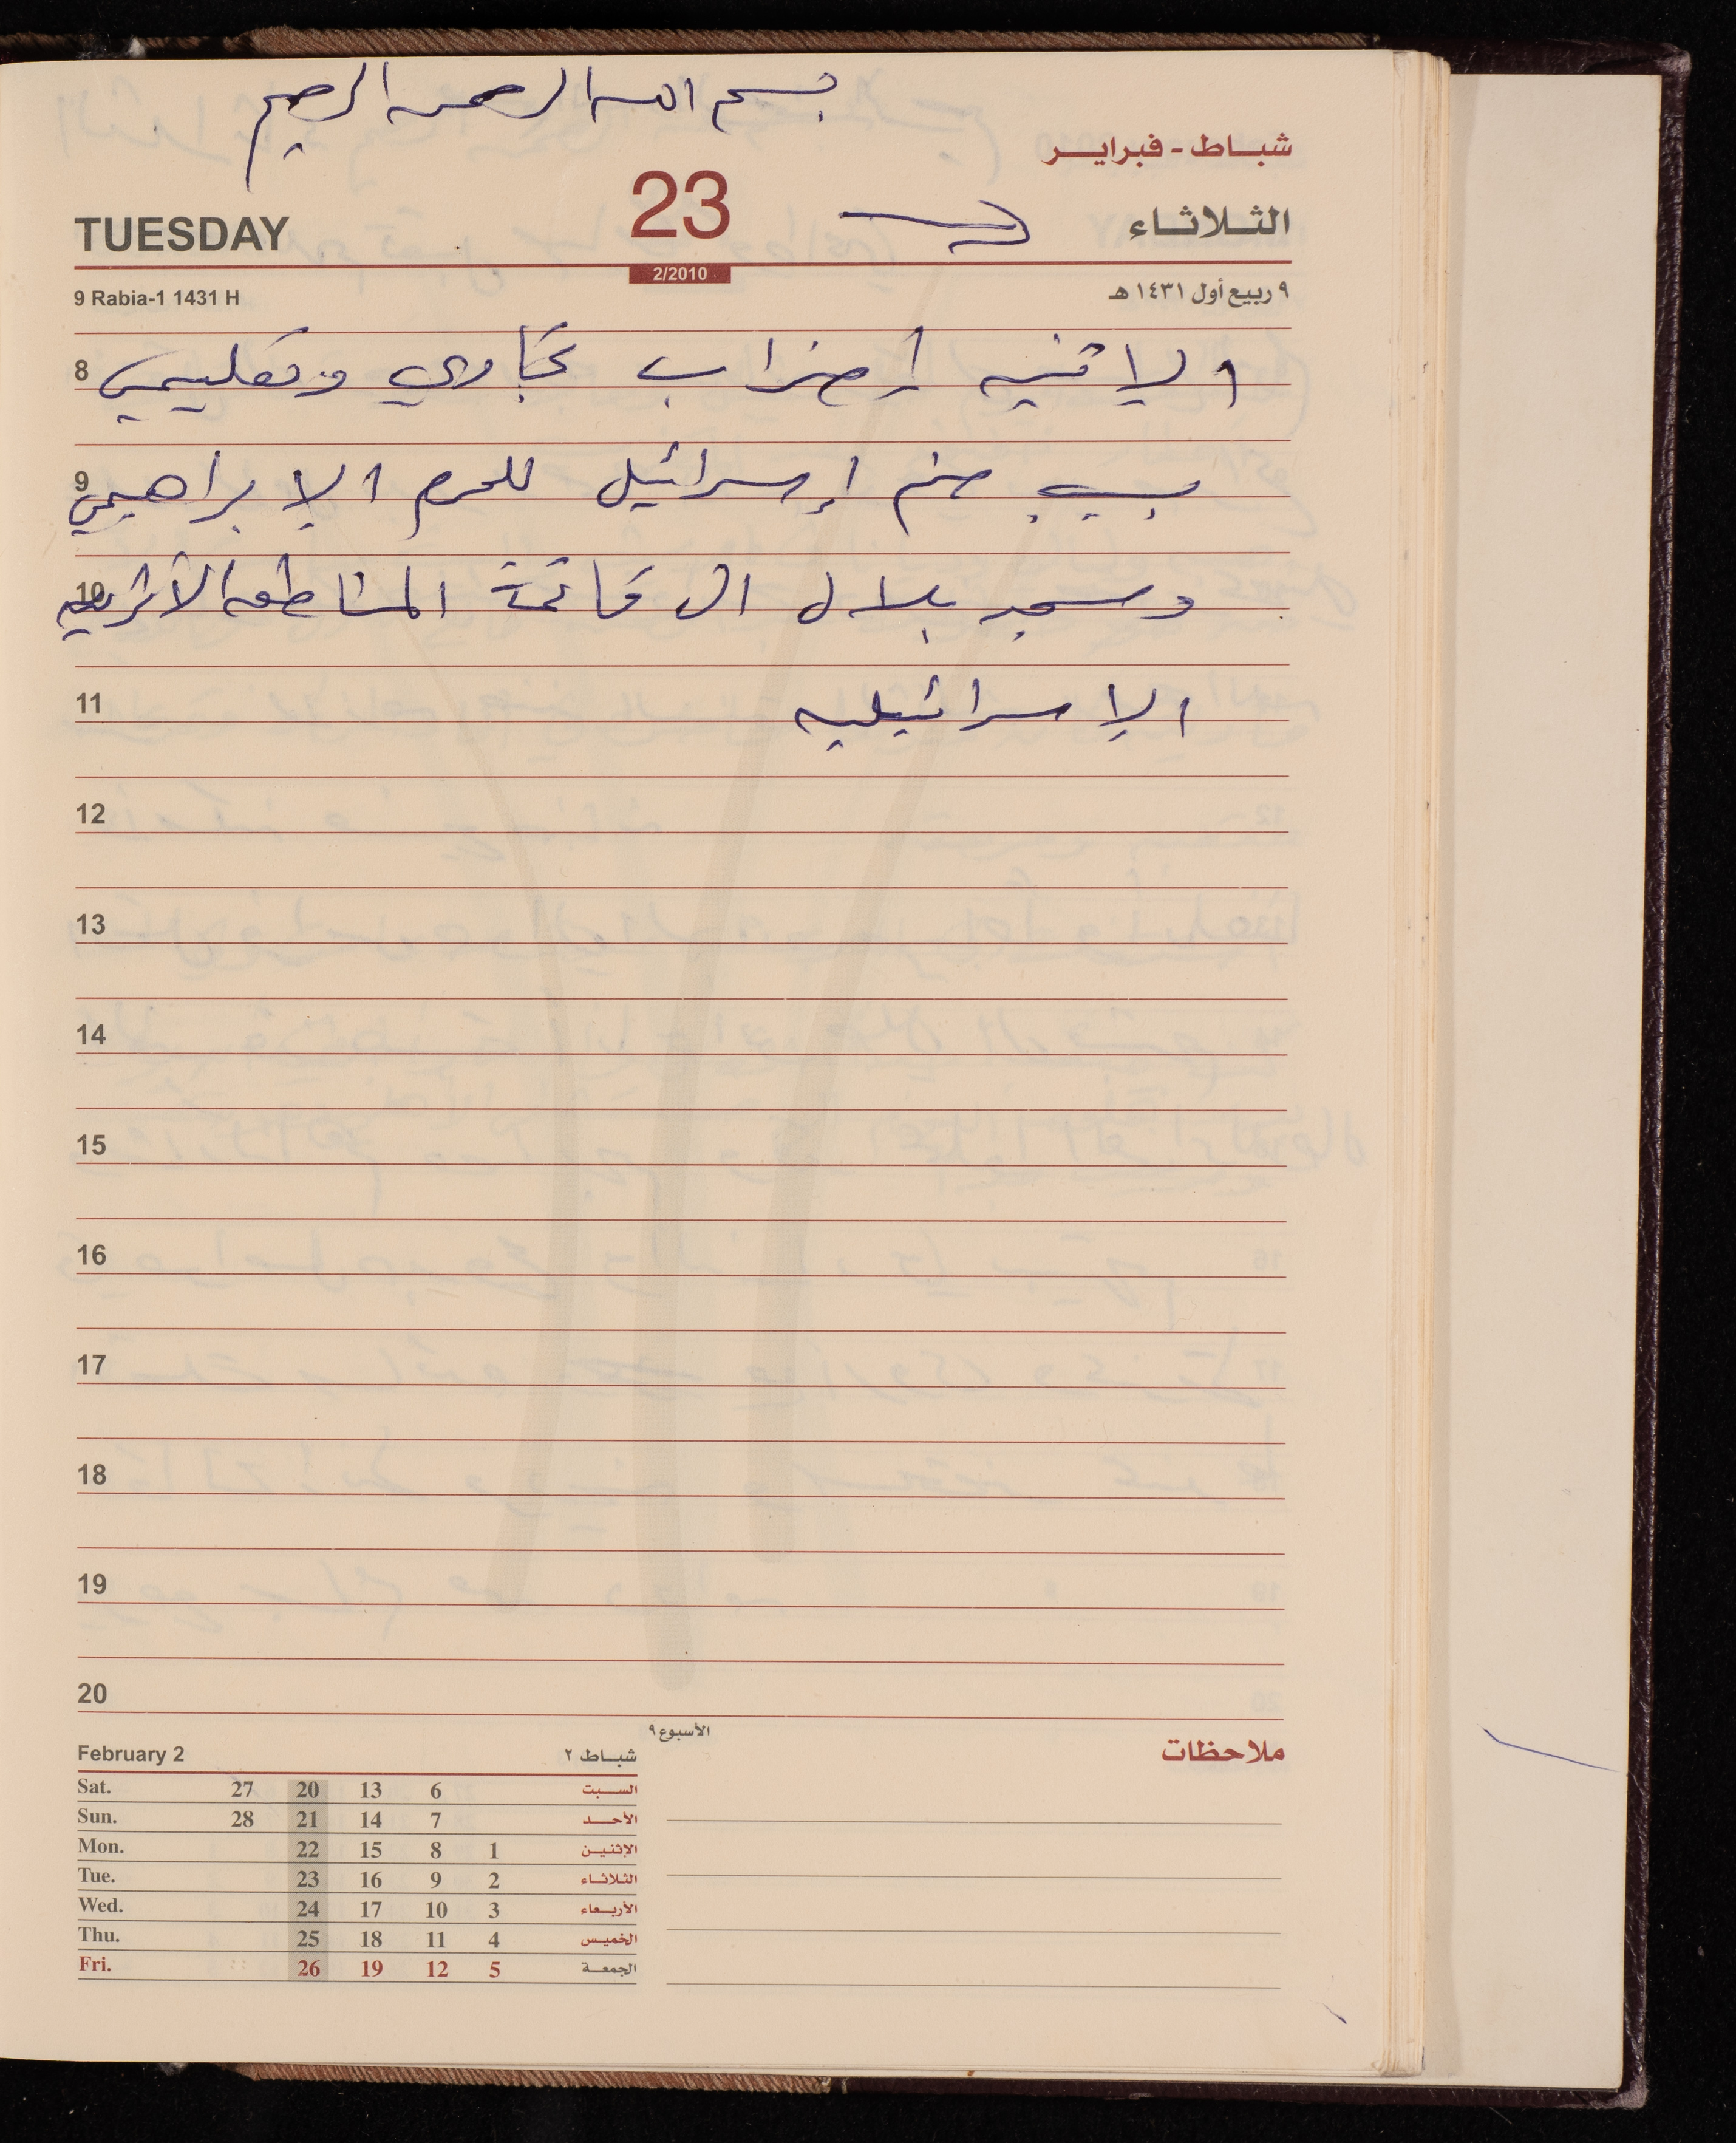 بسم الله الرحمن الرحيم
شباط - فبراير
TUESDAY 23 الثلاثاء
2/2010
9 Rabia-1 1431 H ٩ ربيع أول ١٤٣١ هـ
8 الاثنين إضراب تجاري وتعليمي
9 بسبب ضم إسرائيل للحرم الإبراهيمي
10 ومسجد بلال الى قائمة المناطق الأثرية
11 الإسرائيلية
12
13
14
15
16
17
18
19
20
الأسبوع ٩
ملاحظات
February 2 شباط ٢
Sat. 27 20 13 6 السبت
Sun. 28 21 14 7 الأحد
Mon. 22 15 8 1 الإثنين
Tue. 23 16 9 2 الثلاثاء
Wed. 24 17 10 3 الأربعاء
Thu. 25 18 11 4 الخميس
Fri. 26 19 12 5 الجمعة